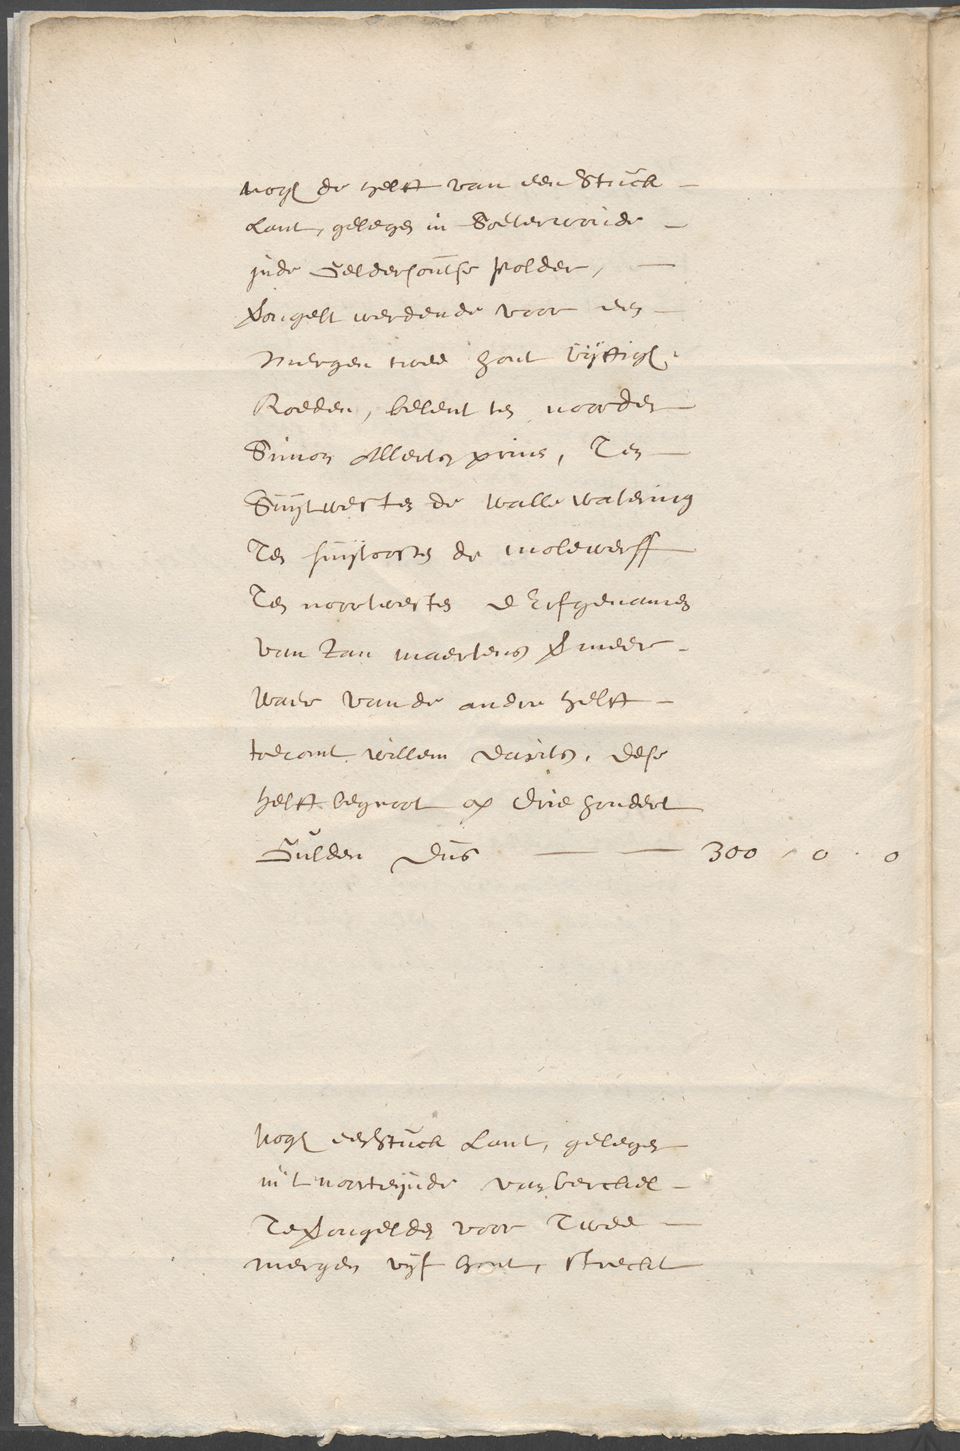 nogh de helft van een stuck
Lant, gelegen in Soeterwoude
inde Geldersoutse polder,
Songelt werdende voor een
mergen twee hont vijftigh
Roeden, belent ten noorden
Simon Allertsz prins, Ten
Suijtwesten de walle watering
Ten suijtoosten de molewerff
Ten noortwesten d'Erfgenamen
van Jan maertensz Smeer
waer van de andre helft
toecomt willem Davitsz, dese
helft begroot op drie hondert
Gulden dus 300 - 0 - 0
nogh een stuck Lant, gelegen
in't noorteijnde van berckel
Te Songelden voor Twee
mergen vijf hont, streckt